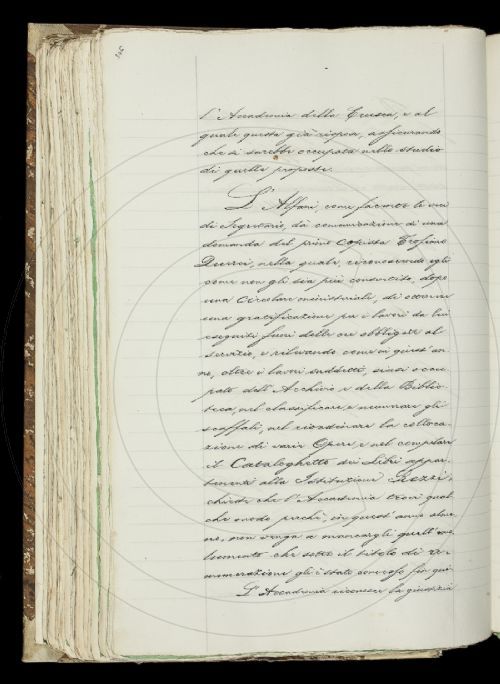 l'Accademia della Crusca, e al
quale questa già rispose, assicurando
che si sarebbe occupata nello studio
di quelle proposte.
L'Alfani, come facente le veci
di Segretario, dà comunicazione di una
domanda del primo Copista
nella quale, riconoscendo egli
come non gli sia più consentito, dopo
una Circolare ministeriale, di ottenere
una gratificazione per i lavori da lui
eseguiti fuori delle ore obbligate al
servizio, e rilevando come in quest'an-
no, oltre i lavori suddetti, siasi occu-
pato dell'Archivio e della Biblio-
teca, nel classificare e numerare gli
scaffali, nel riordinare la colloca-
zione di varie Opere, e nel compilare
il Cataloghetto dei Libri appar-
tenenti alla Istituzione Rezzi,
chiede che l'Accademia trovi qual-
che modo perchè, in quest'anno alme-
no, non venga a mancargli quell'
che sotto il titolo di re-
munerazione gli è stato concesso fin qui.
L'Accademia riconosce la giustizia